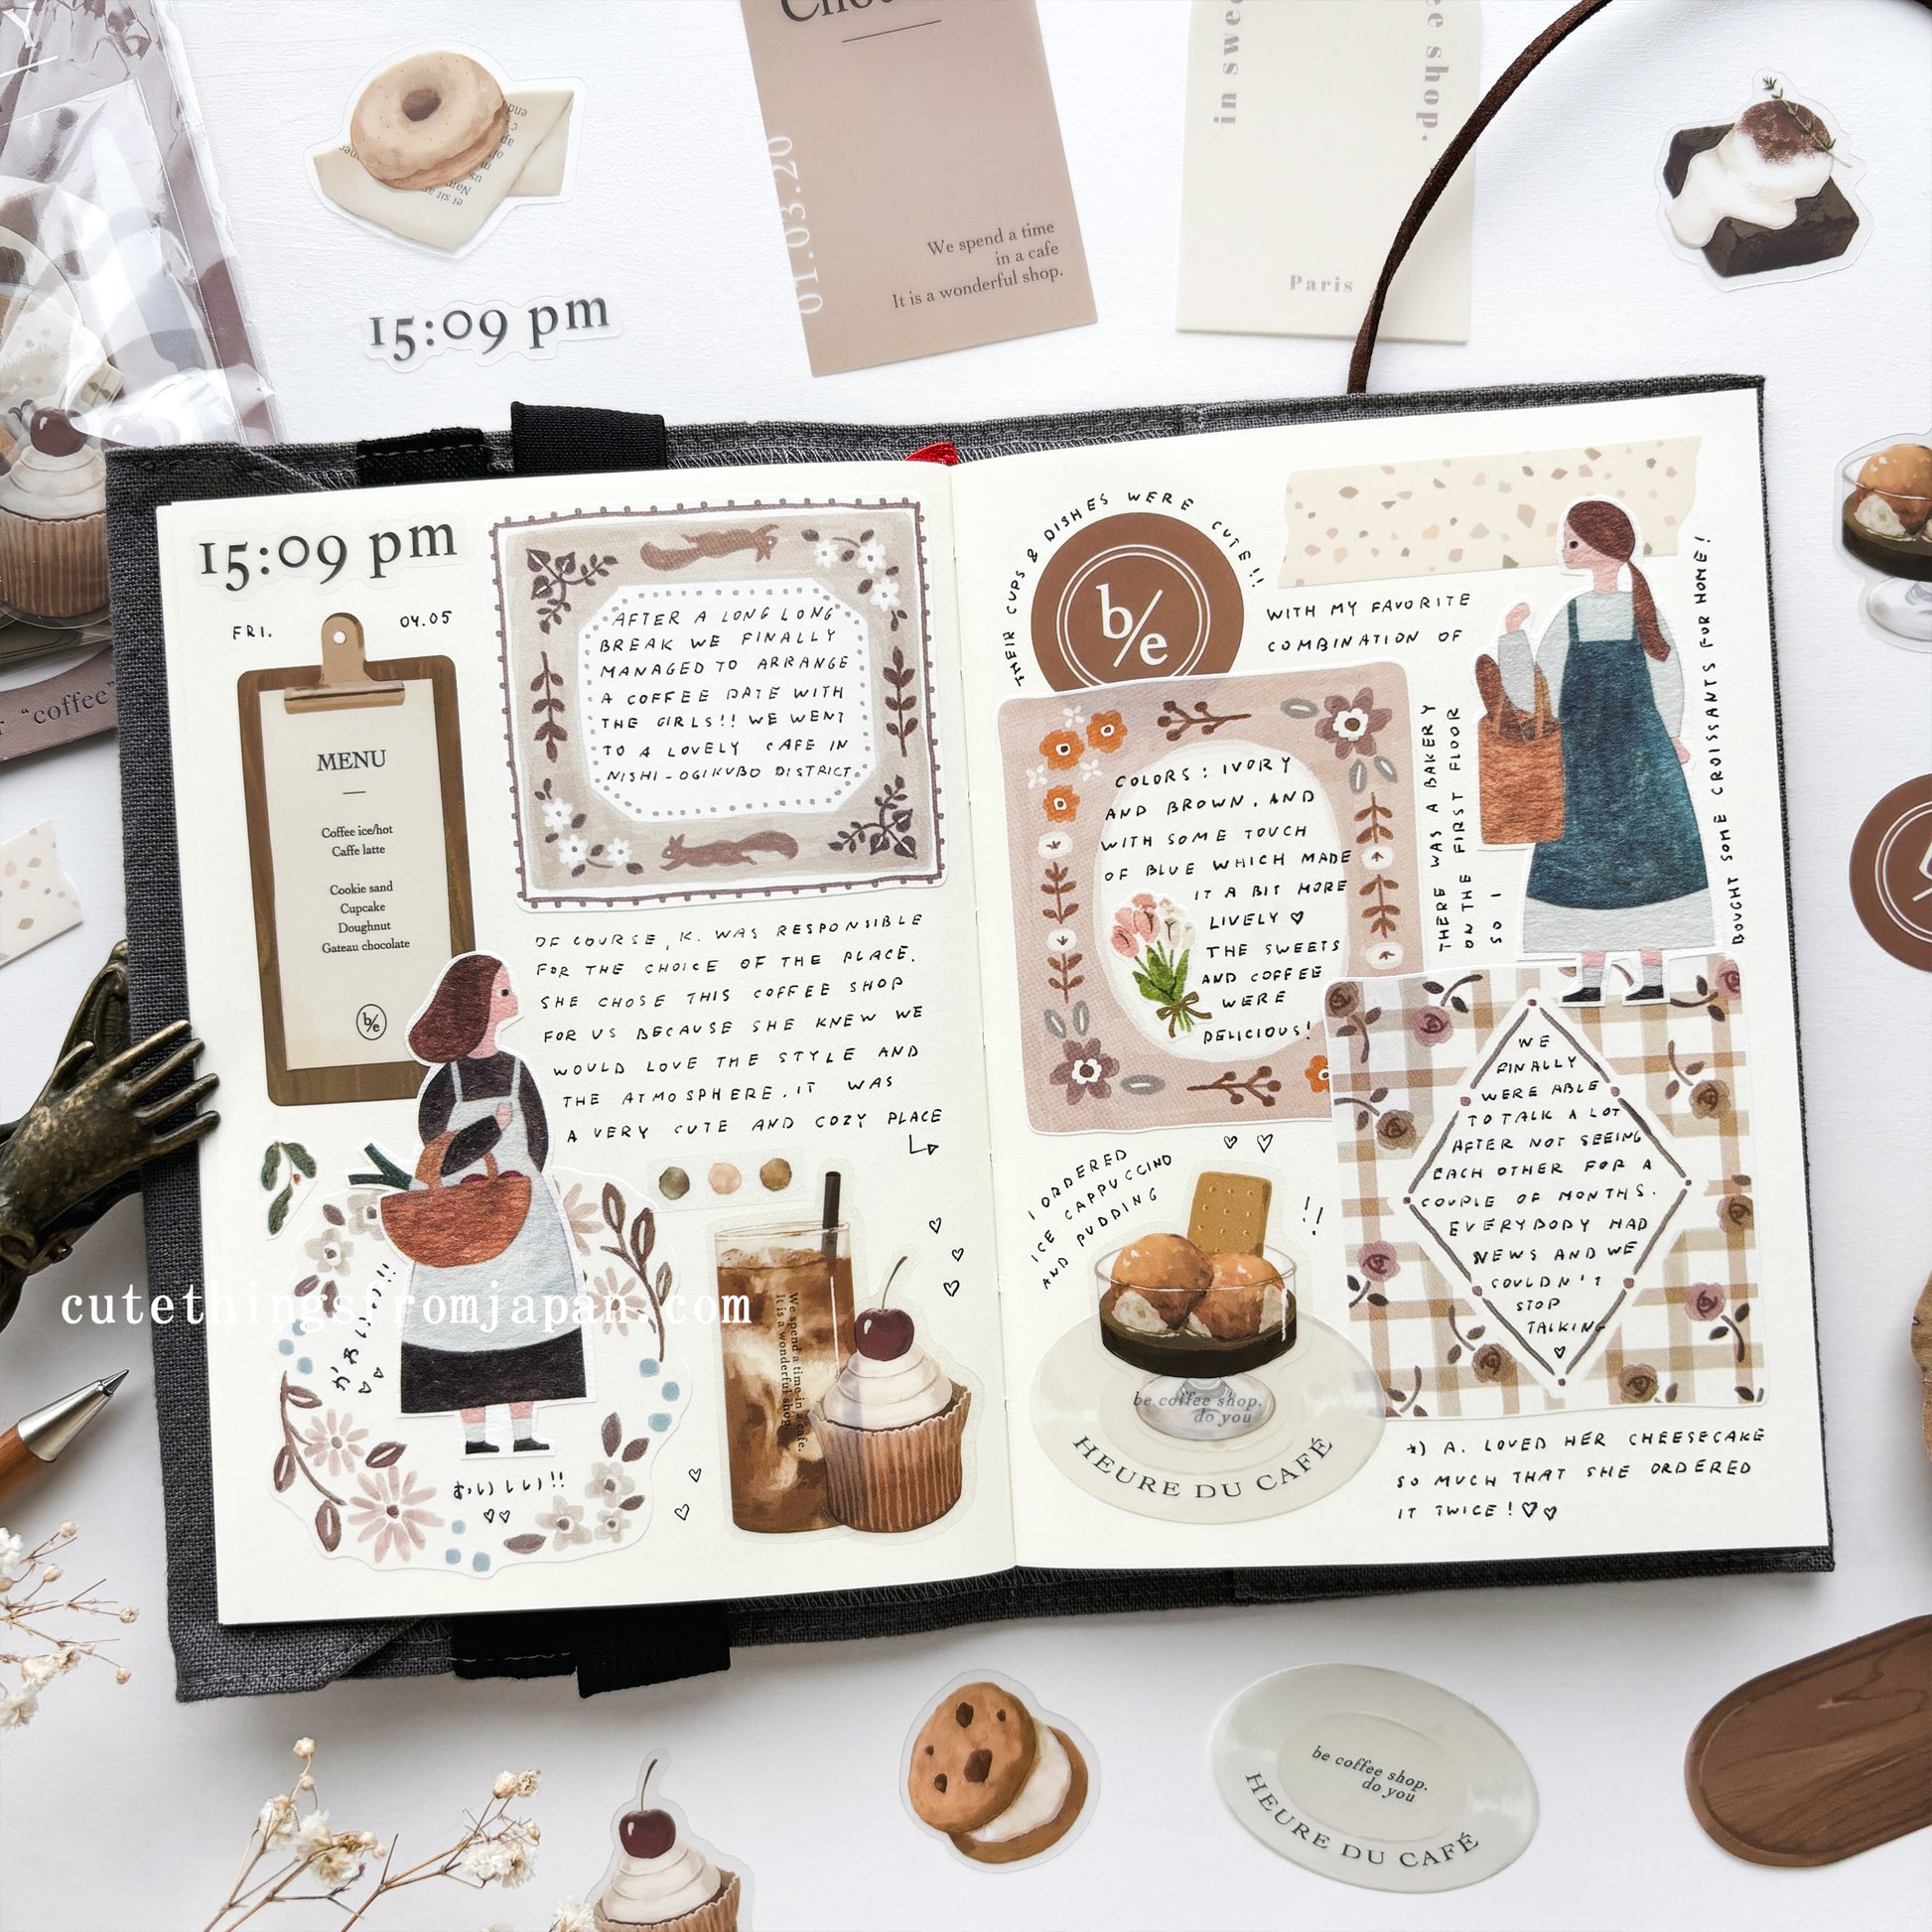 15:09 pm
01.03.20
We spend a time
in a cafe
It is a wonderful shop.
ee shop.
Paris
"coffee"
15:09 pm
FRI.
04.05
MENU
Coffee ice/hot
Caffe latte
Cookie sand
Cupcake
Doughnut
Gateau chocolate
b/e
AFTER A LONG LONG
BREAK WE FINALLY
MANAGED TO ARRANGE
A COFFEE DATE WITH
THE GIRLS!! WE WENT
TO A LOVELY CAFE IN
NISHI-OGIKUBO DISTRICT.
OF COURSE, K. WAS RESPONSIBLE
FOR THE CHOICE OF THE PLACE.
SHE CHOSE THIS COFFEE SHOP
FOR US BECAUSE SHE KNEW WE
WOULD LOVE THE STYLE AND
THE ATMOSPHERE. IT WAS
A VERY CUTE AND COZY PLACE
かわいい!!
おいしい!!
We spend a time in a cafe.
It is a wonderful shop.
cutethingsfromjapan.com
THEIR CUPS & DISHES WERE CUTE!!
b/e
WITH MY FAVORITE
COMBINATION OF
COLORS: IVORY
AND BROWN. AND
WITH SOME TOUCH
OF BLUE WHICH MADE
IT A BIT MORE
LIVELY ♡
THE SWEETS
AND COFFEE
WERE
DELICIOUS!
THERE WAS A BAKERY
ON THE FIRST FLOOR
SO I
BOUGHT SOME CROISSANTS FOR HOME!
I ORDERED
ICE CAPPUCCINO
AND PUDDING
!!
be coffee shop.
do you
HEURE DU CAFÉ
WE
FINALLY
WERE ABLE
TO TALK A LOT
AFTER NOT SEEING
EACH OTHER FOR A
COUPLE OF MONTHS.
EVERYBODY HAD
NEWS AND WE
COULDN'T
STOP
TALKING
♡
*) A. LOVED HER CHEESECAKE
SO MUCH THAT SHE ORDERED
IT TWICE! ♡♡
be coffee shop.
do you
HEURE DU CAFÉ